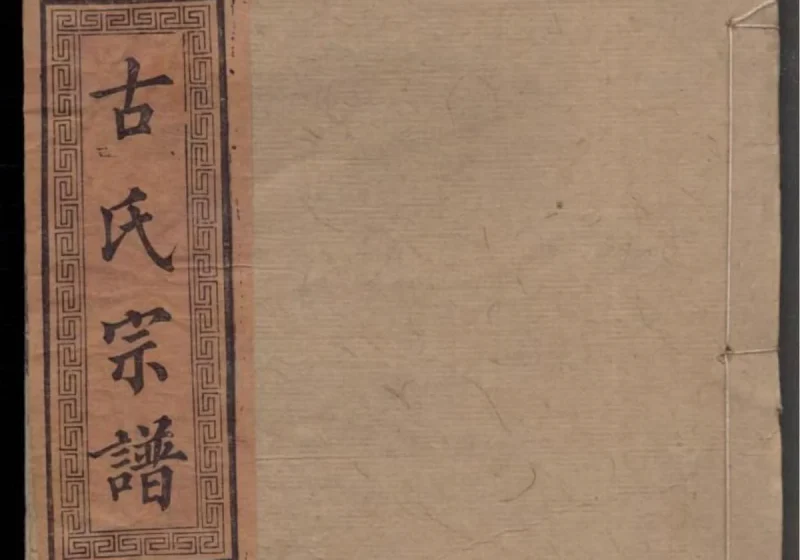 古氏宗譜